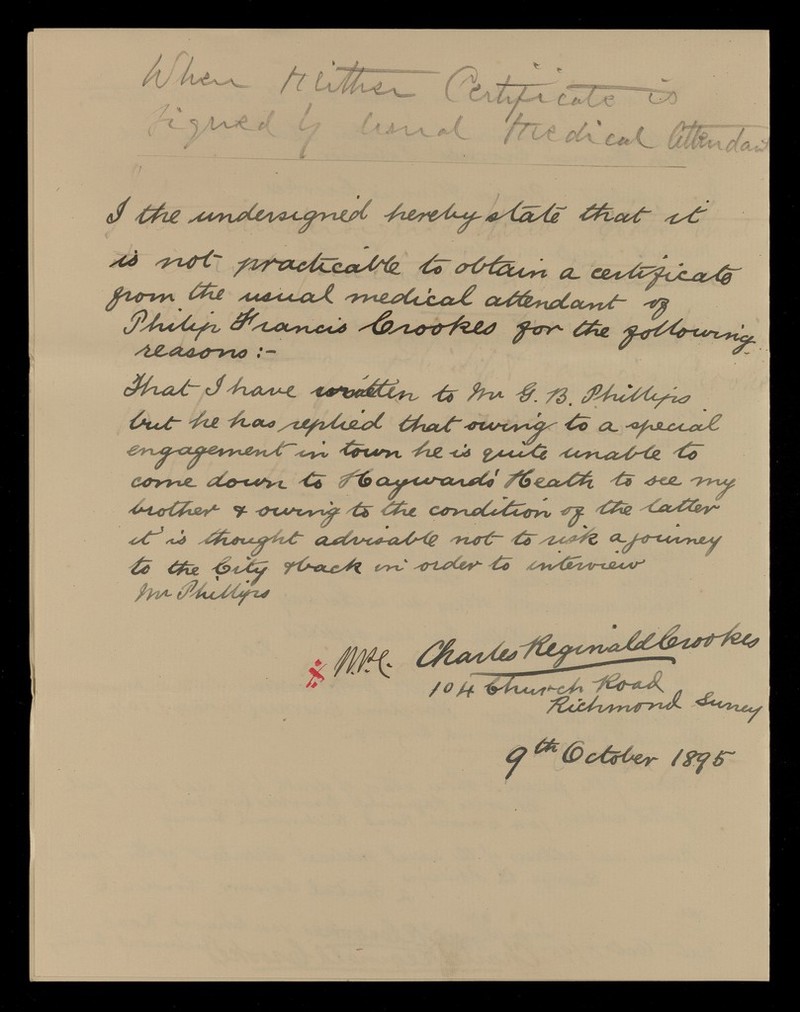 When Neither Certificate is
signed by Usual Medical Attendant
I the undersigned hereby state that it
is not practicable to obtain a certificate
from the usual medical attendant of
Philip Francis Crookes for the following
reasons:-
That I have written to Mr G. B. Phillips
but he has replied that owing to a special
engagement in town he is quite unable to
come down to Haywards' Heath to see my
brother & owing to the condition of the latter
it is thought advisable not to risk a journey
to the City & back in order to interview
Mr Phillips
Charles Reginald Crookes
104 Church Road
Richmond Surrey
9th October 1895